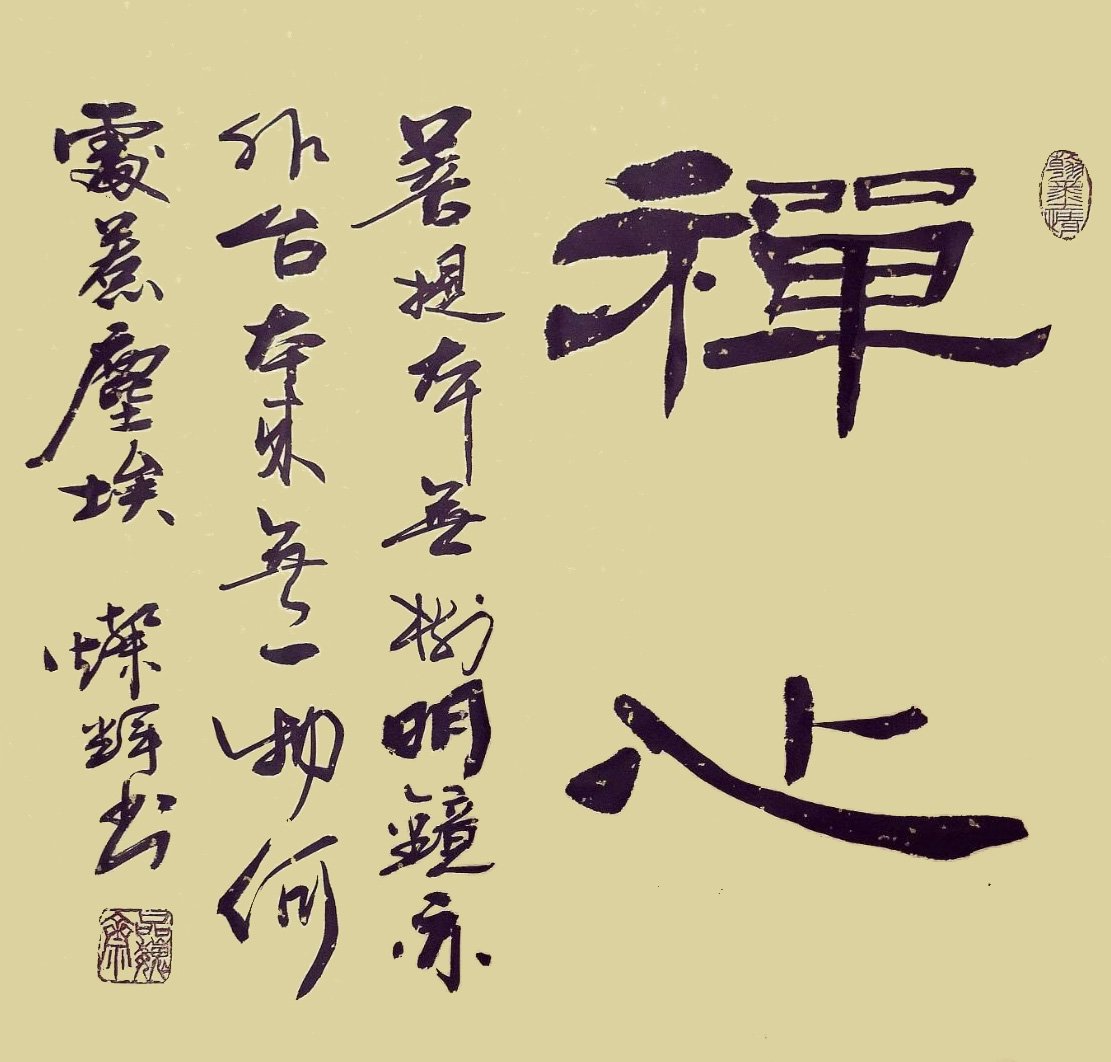 禪心
菩提本無樹明鏡亦
非台本來無一物何
處惹塵埃 燦輝书